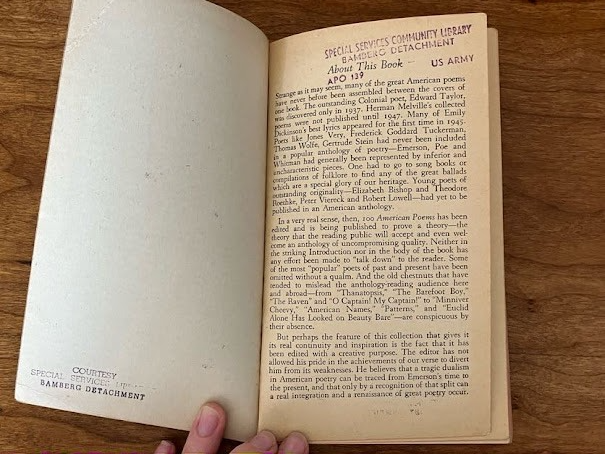 COURTESY
SPECIAL SERVICES
BAMBERG DETACHMENT
SPECIAL SERVICES COMMUNITY LIBRARY
BAMBERG DETACHMENT
About This Book
US ARMY
APO 139
Strange as it may seem, many of the great American poems
have never before been assembled between the covers of
one book. The outstanding Colonial poet, Edward Taylor,
was discovered only in 1937. Herman Melville's collected
poems were not published until 1947. Many of Emily
Dickinson's best lyrics appeared for the first time in 1945.
Poets like Jones Very, Frederick Goddard Tuckerman,
Thomas Wolfe, Gertrude Stein had never been included
in a popular anthology of poetry—Emerson, Poe and
Whitman had generally been represented by inferior and
uncharacteristic pieces. One had to go to song books or
compilations of folklore to find any of the great ballads
which are a special glory of our heritage. Young poets of
outstanding originality—Elizabeth Bishop and Theodore
Roethke, Peter Viereck and Robert Lowell—had yet to be
published in an American anthology.
In a very real sense, then, 100 American Poems has been
edited and is being published to prove a theory—the
theory that the reading public will accept and even wel-
come an anthology of uncompromising quality. Neither in
the striking Introduction nor in the body of the book has
any effort been made to "talk down" to the reader. Some
of the most "popular" poets of past and present have been
omitted without a qualm. And the old chestnuts that have
tended to mislead the anthology-reading audience here
and abroad—from "Thanatopsis," "The Barefoot Boy,"
"The Raven" and "O Captain! My Captain!" to "Minniver
Cheevy," "American Names," "Patterns," and "Euclid
Alone Has Looked on Beauty Bare"—are conspicuous by
their absence.
But perhaps the feature of this collection that gives it
its real continuity and inspiration is the fact that it has
been edited with a creative purpose. The editor has not
allowed his pride in the achievements of our verse to divert
him from its weaknesses. He believes that a tragic dualism
in American poetry can be traced from Emerson's time to
the present, and that only by a recognition of that split can
a real integration and a renaissance of great poetry occur.